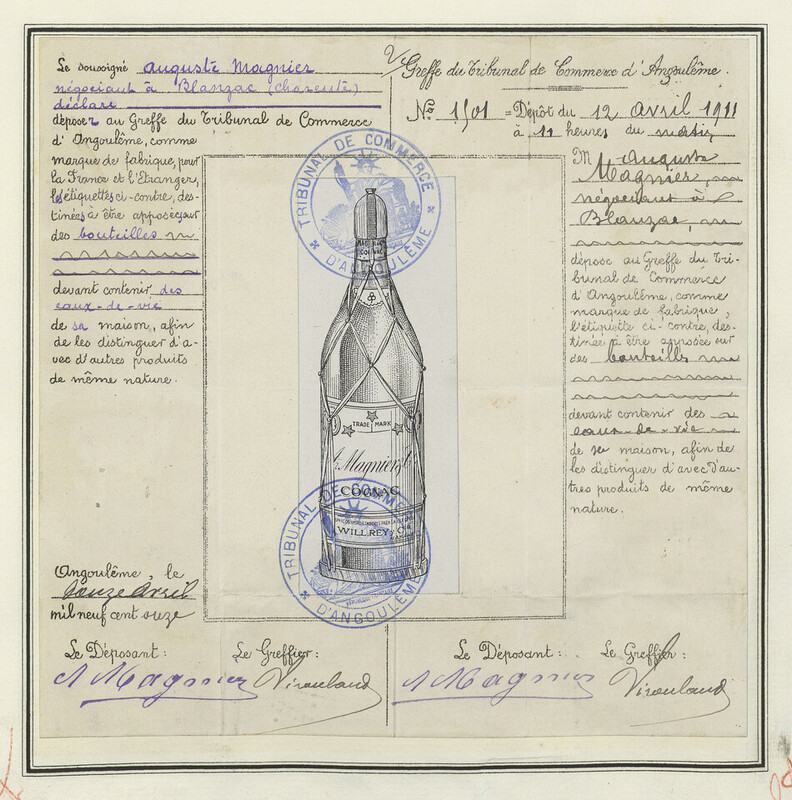 Le soussigné Auguste Magnier
négociant à Blanzac (Charente)
déclare
déposer au Greffe du Tribunal de Commerce
d'Angoulême, comme
marque de fabrique, pour
la France et l'Etranger,
les étiquettes ci-contre, des-
tinées à être apposées sur
des bouteilles
devant contenir des
eaux-de-vie
de sa maison, afin
de les distinguer d'a-
vec d'autres produits
de même nature.
Angoulême, le
douze avril
mil neuf cent onze
Le Déposant:
A Magnier
Le Greffier:
TRIBUNAL DE COMMERCE
D'ANGOULÊME
TRADE MARK
A. Magnier & Co
COGNAC
WILL. REY y Cia
TRIBUNAL DE COMMERCE
D'ANGOULÊME
Greffe du Tribunal de Commerce d'Angoulême.
No 1501 = Dépôt du 12 avril 1911
à 11 heures du matin
M Auguste
Magnier,
négociant à
Blanzac,
dépose au Greffe du Tri-
bunal de Commerce
d'Angoulême, comme
marque de fabrique,
l'étiquette ci-contre, des-
tinée à être apposée sur
des bouteilles
devant contenir des
eaux-de-vie
de sa maison, afin de
les distinguer d'avec d'au-
tres produits de même
nature.
Le Déposant:
A Magnier
Le Greffier: